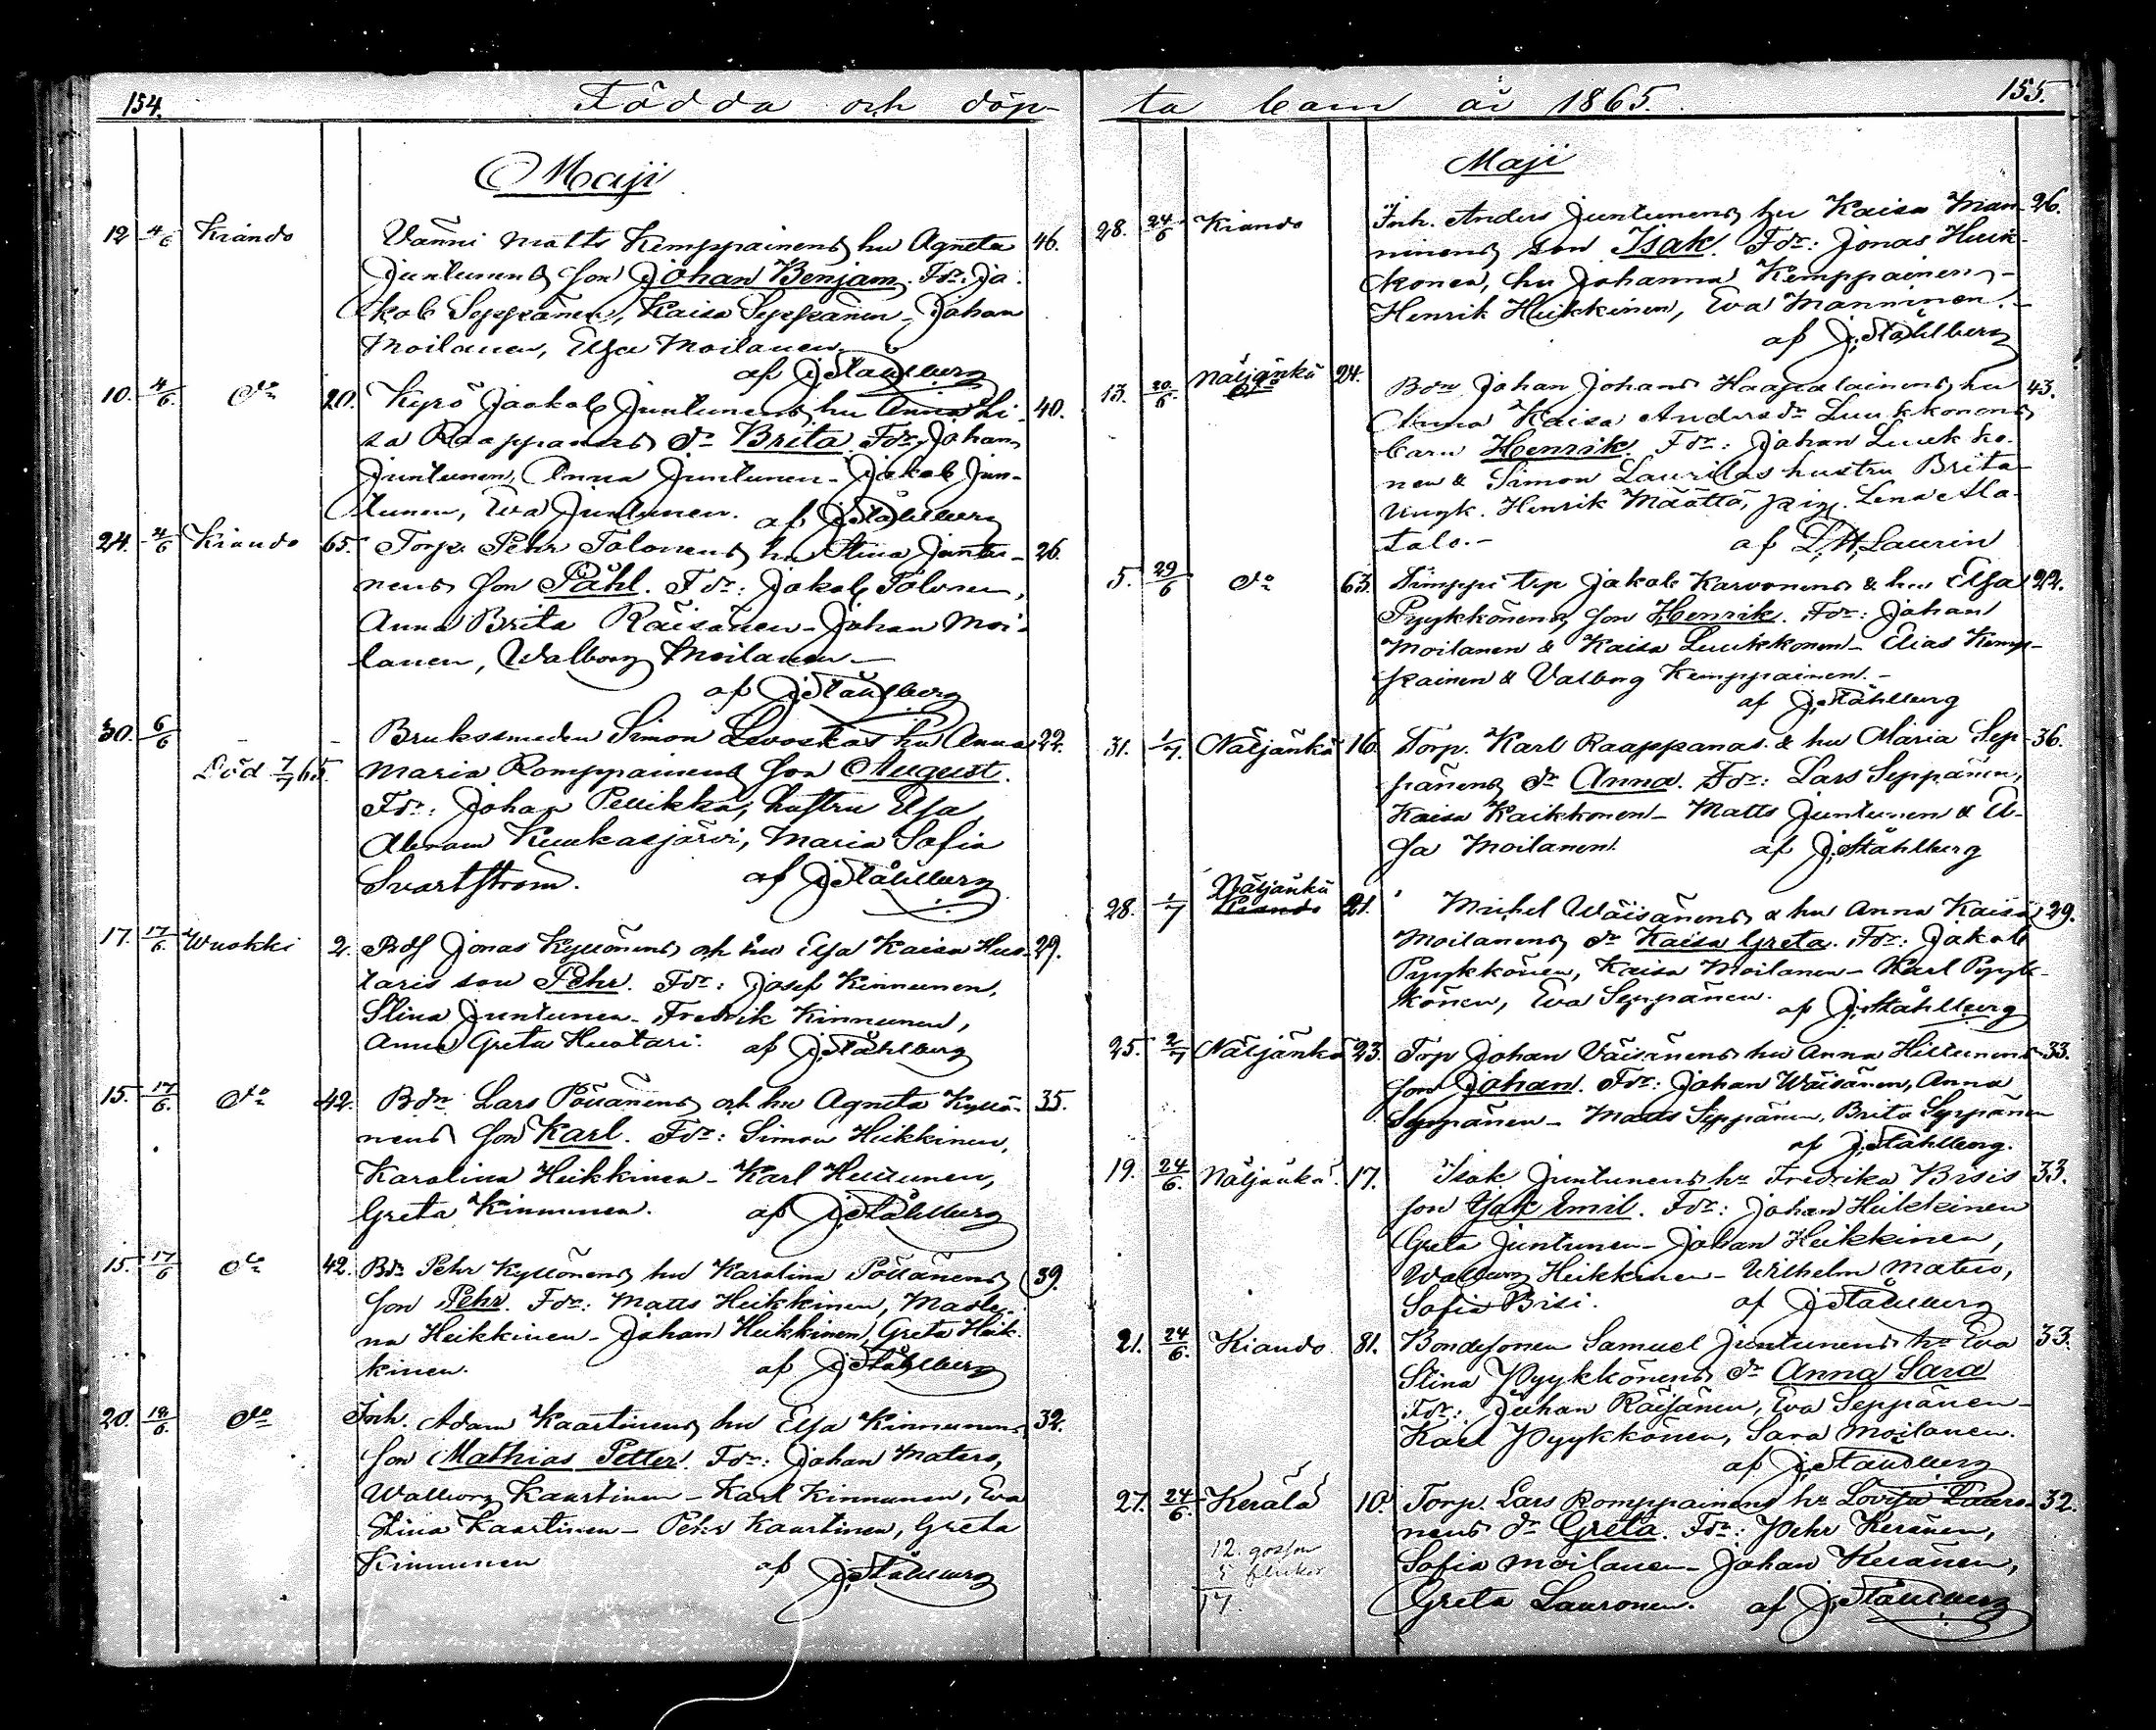 154.
Födda och döp-
Maji
12 4/6 Kiando Vänni Matts Kemppainens hu Agneta 46.
Juntunens son Johan Benjam. Fdr: Ja-
kob Seppänen, Kaisa Seppänen - Johan
Moilanen, Elsa Moilanen
af J. Ståhlberg
10. 4/6. do 20. Kyrö Jaakob Juntunens hu Anna Li- 40.
sa Raappanas dr Brita. Fdr: Johan
Juntunen, Anna Juntunen - Jakob Jun-
tunen, Eva Juntunen. af J. Ståhlberg
24. 4/6 Kiando 65. Torp. Pehr Tolonens hu Stina Juntu- 26.
nens son Påhl. Fdr: Jakob Tolonen,
Anna Brita Räisänen - Johan Moi-
lanen, Walborg Moilanen -
af J. Ståhlberg
30. 6/6 - - Brukssmeden Simon Levoskas hu Anna 22.
Död 7/7 65. Maria Romppainens son August.
Fdr: Johan Peuikka, hustru Elsa,
Abram Kuukasjärvi, Maria Sofia
Svartström. af J. Ståhlberg
17. 17/6. Wuokki 2. Bds Jonas Kyllönens och hu Elsa Kaisa Huo- 29.
taris son Pehr. Fdr: Josef Kinnunen,
Stina Juntunen - Fredrik Kinnunen,
Anna Greta Huotari. af J. Ståhlberg
15. 17/6. do 42. Bdn Lars Pöllänens och hu Agneta Kyllö- 35.
nens son Karl. Fdr: Simon Heikkinen,
Karolina Heikkinen - Karl Heikkinen,
Greta Kinnunen. af J. Ståhlberg
15. 17/6 do 42. Bdn Pehr Kyllönens hu Karolina Pöllänens 39.
son Pehr. Fdr: Matts Heikkinen, Madle-
na Heikkinen - Johan Heikkinen, Greta Heik-
kinen. af J. Ståhlberg
20. 18/6. do Inh. Adam Kaartinens hu Elsa Kinnunens 32.
son Mathias Petter. Fdr: Johan Matero,
Walborg Kaartinen - Karl Kinnunen, Eva
Stina Kaartinen - Pehr Kaartinen, Greta
Kinnunen af J. Ståhlberg
ta barn år 1865.
155.
Maji
28. 24/6 Kiando Inh. Anders Juntunens hu Kaisa Man- 26.
ninens son Isak. Fdr: Jonas Heik-
konen, hu Johanna Kemppainen -
Henrik Heikkinen, Eva Manninen. -
af J. Ståhlberg
13. 20/6 Näljänkä 24. Bdn Johan Johans Haapalainens hu 43.
Anna Kaisa Anders dr Luukkonens
barn Henrik. Fdr: Johan Luukko-
nen & Simon Laurilas hustru Brita
Ungk. Henrik Määttä, pig. Lena Ala-
talo. - af L. H. Laurin
5. 29/6 do 63. Timppi trp Jakob Karvonens & hu Elsa 22.
Pyykkönens son Henrik. Fdr: Johan
Moilanen & Kaisa Luukkonen - Elias Kemp-
painen & Valborg Kemppainen. -
af J. Ståhlberg
31. 1/7. Näljänkä 16. Torp. Karl Raappanas & hu Maria Sep- 36.
pänens dr Anna. Fdr: Lars Seppänen,
Kaisa Kaikkonen - Matts Juntunen & El-
sa Moilanen. af J. Ståhlberg
28. 1/7 Näljänkä Kiando 21. Michel Wäisänens & hu Anna Kaisa 29.
Moilanens dr Kaisa Greta. Fdr: Jakob
Pyykkönen, Kaisa Moilanen - Karl Pyyk-
könen, Eva Seppänen. af J. Ståhlberg
25. 2/7 Näljänkä 23. Torp Johan Väisänens hu Anna Hiltunens 33.
son Johan. Fdr: Johan Wäisänen, Anna
Seppänen - Matts Seppänen, Brita Seppänen
af J. Ståhlberg.
19. 24/6. Näljänkä. 17. Isak Juntunens hu Fredrika Bisis 33.
son Isak Emil. Fdr: Johan Heikkinen
Greta Juntunen - Johan Heikkinen,
Walborg Heikkinen - Wilhelm Matero,
Sofia Bisi. af J. Ståhlberg
21. 24/6. Kiando. 81. Bondesonen Samuel Juntunens hu Eva 33.
Stina Pyykkönens dr Anna Sara
Fdr: Juhan Räisänen, Eva Seppänen -
Karl Pyykkönen, Sara Moilanen.
af J. Ståhlberg
27. 24/6. Kerälä 10. Torp. Lars Romppainens hu Lovisa Lauro- 32.
nens dr Greta. Fdr: Pehr Keränen,
12. gossar Sofia Moilanen - Johan Keränen,
5 flickor
17. Greta Lauronen. af J. Ståhlberg